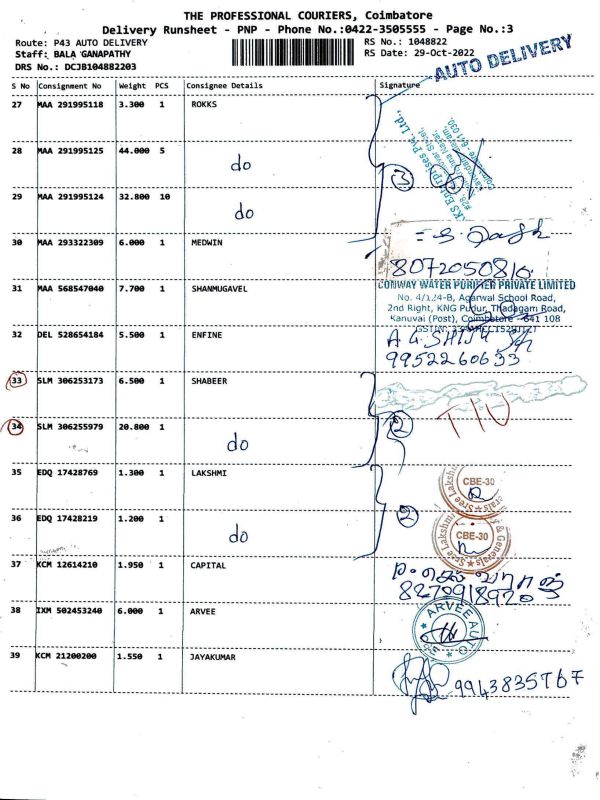 THE PROFESSIONAL COURIERS, Coimbatore
Delivery Runsheet - PNP - Phone No.:0422-3505555 - Page No.:3
Route: P43 AUTO DELIVERY
RS No.: 1048822
Staff: BALA GANAPATHY
RS Date: 29-Oct-2022
DRS No.: DCJB104882203
AUTO DELIVERY
S No Consignment No Weight PCS Consignee Details Signature
27 MAA 291995118 3.300 1 ROKKS
28 MAA 291995125 44.000 5 do
29 MAA 291995124 32.800 10 do
3
30 MAA 293322309 6.000 1 MEDWIN
31 MAA 568547040 7.700 1 SHANMUGAVEL
CONWAY WATER PURIFIER PRIVATE LIMITED
No. 4/124-B, Agarwal School Road,
2nd Right, KNG Pudur, Thadagam Road,
Kanuvai (Post), Coimbatore - 641 108
32 DEL 528654184 5.500 1 ENFINE
9952260633
33 SLM 306253173 6.500 1 SHABEER
34 SLM 306255979 20.800 1 do
2
35 EDQ 17428769 1.300 1 LAKSHMI
CBE-30
36 EDQ 17428219 1.200 1 do
2
CBE-30
37 KCM 12614210 1.950 1 CAPITAL
38 IXM 502453240 6.000 1 ARVEE
ARVEE AUTO
39 KCM 21200200 1.550 1 JAYAKUMAR
9943835767